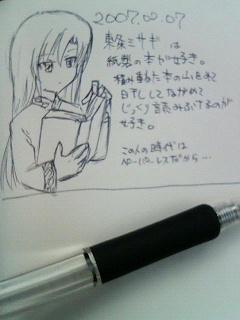 2007.00.07
東条ミサギ は
紙製の本が好き。
積み重ねた本の山を
日干ししてながめて
じっくり読みふけるのが
好き。
この人の時代は
ペーパーレスだから…